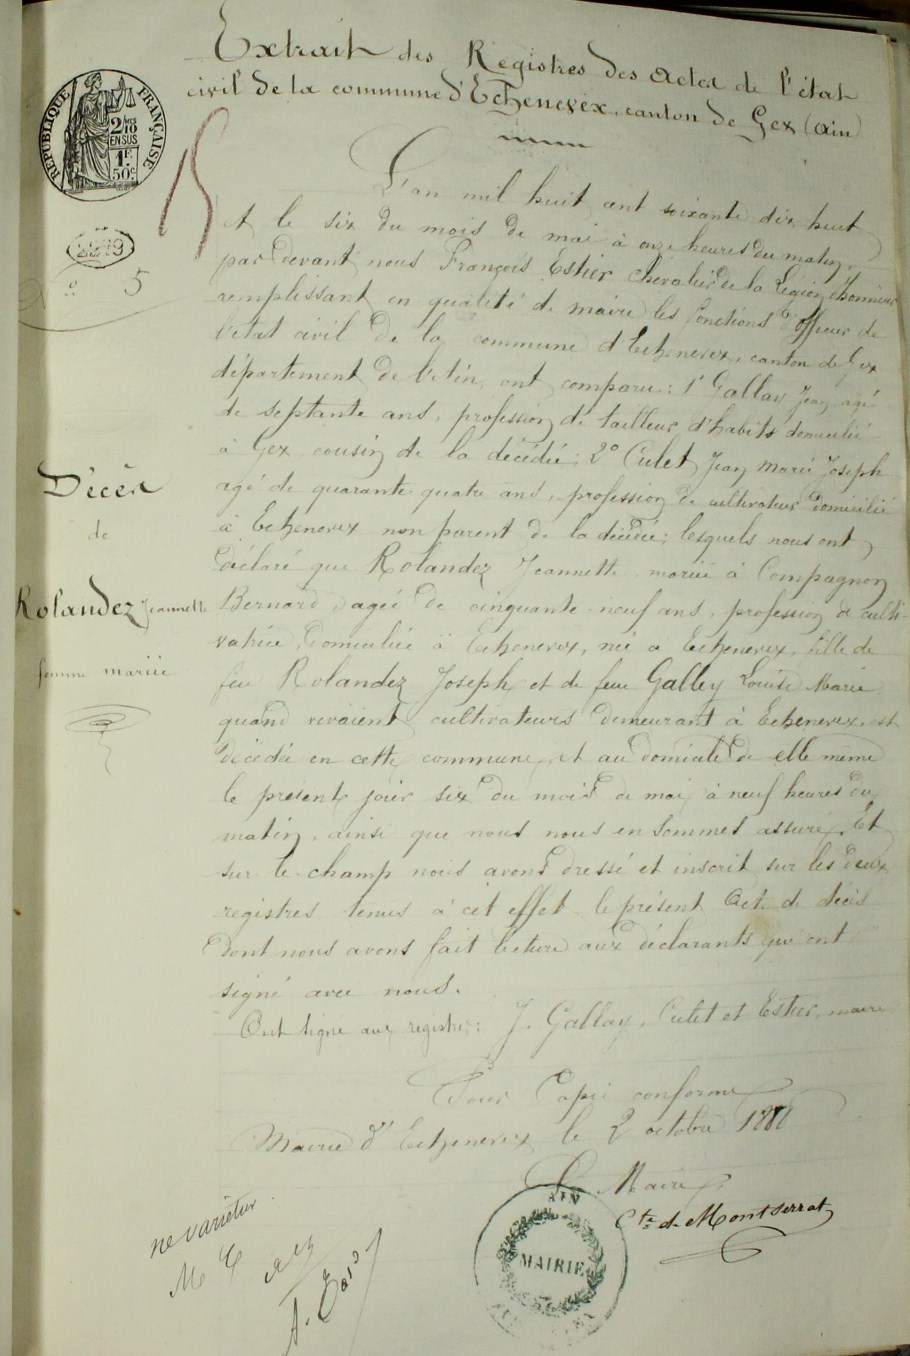 Extrait des Registres des Actes de l'état
civil de la commune d'Echenevex, canton de Gex (Ain)
RÉPUBLIQUE FRANÇAISE
2/10
EN SUS
1F
50c
2279
N° 5
L'an mil huit cent soixante dix huit
et le six du mois de mai à onze heures du matin,
par devant nous François Estier Chevalier de la Légion d'honneur
remplissant en qualité de maire les fonctions d'officier de
l'état civil de la commune d'Echenevex, canton de Gex
département de l'Ain, ont comparu: 1° Gallay Jean agé
de septante ans, profession de tailleur d'habits domicilié
à Gex cousin de la décédée; 2° Culet Jean Marie Joseph
agé de quarante quatre ans, profession de cultivateur domicilié
à Echenevex non parent de la décédée; lesquels nous ont
déclaré que Rolandez Jeannette mariée à Compagnon
Bernard, agée de cinquante neuf ans, profession de culti-
vatrice, domiciliée à Echenevex, née à Echenevex, fille de
feu Rolandez Joseph et de feue Galley Louise Marie
quand vivaient cultivateurs demeurant à Echenevex, est
décédée en cette commune et au domicile de elle même
le présent jour six du mois de mai à neuf heures du
matin, ainsi que nous nous en sommes assuré. Et
sur le champ nous avons dressé et inscrit sur les deux
registres tenus à cet effet le présent Acte de décès
dont nous avons fait lecture aux déclarants qui ont
signé avec nous.
Ont signé aux registres: J. Gallay, Culet et Estier, maire
Décès
de
Rolandez Jeannette
femme mariée
Pour Copie conforme
Mairie d'Echenevex le 2 octobre 1880
Le Maire,
Cte de Montserrat
AIN
MAIRIE
ne varietur